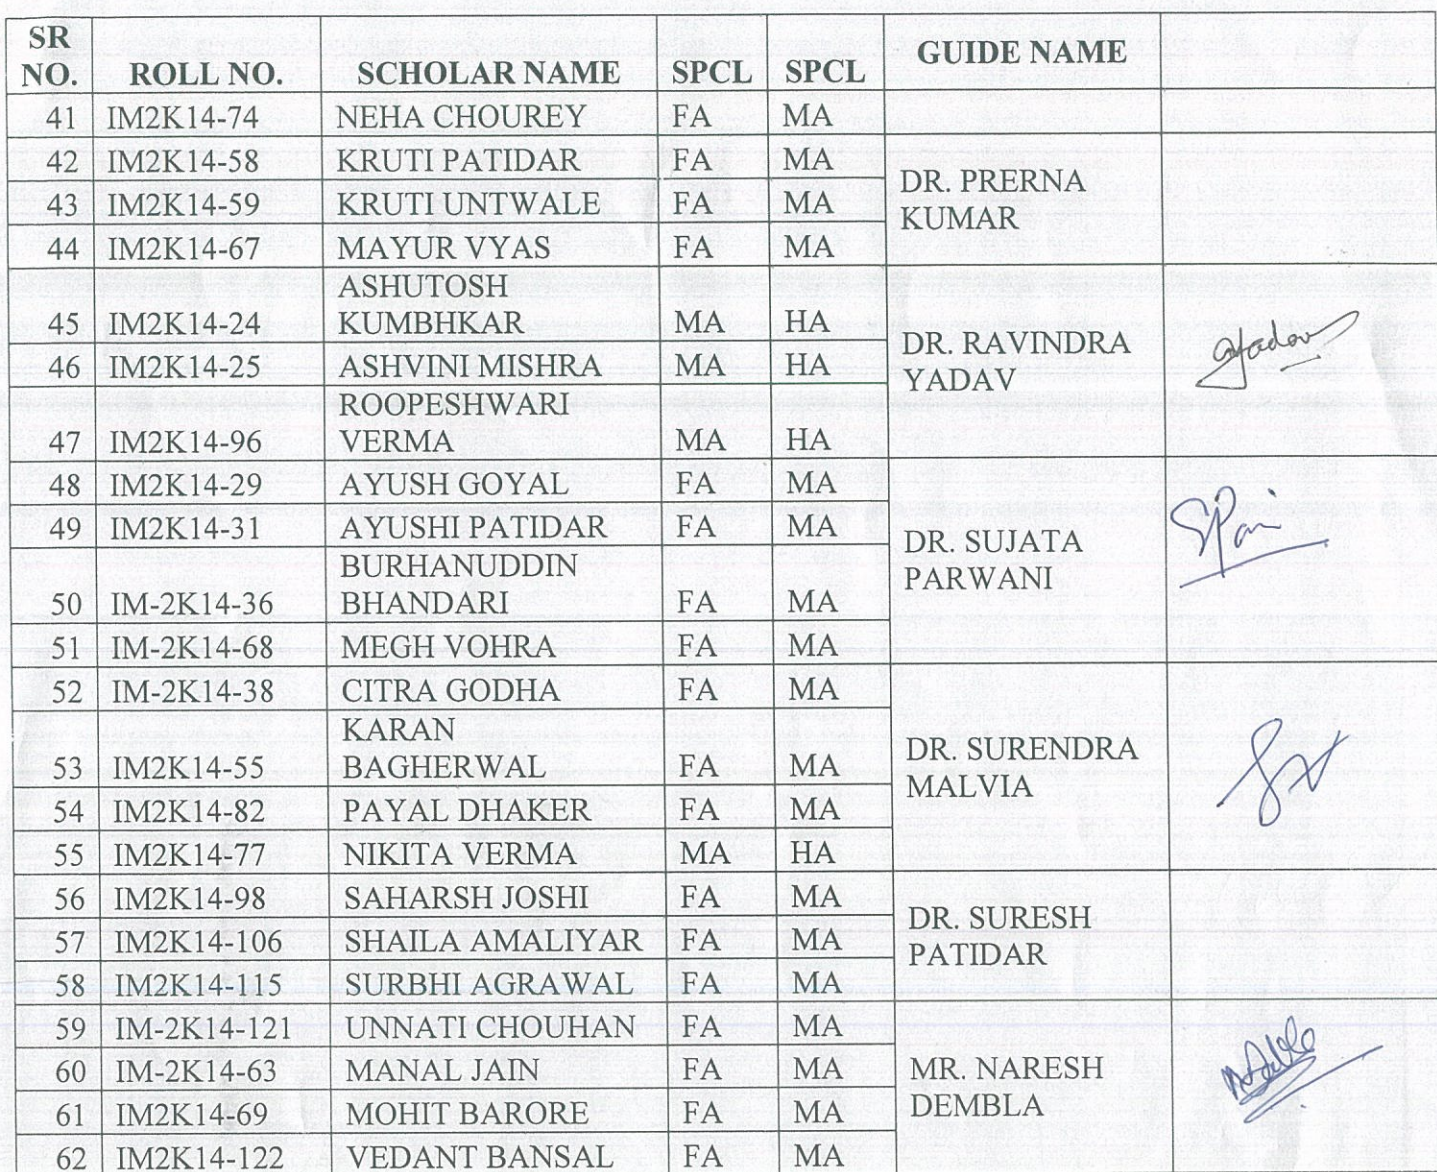 SR NO. ROLL NO. SCHOLAR NAME SPCL SPCL GUIDE NAME
41 IM2K14-74 NEHA CHOUREY FA MA
42 IM2K14-58 KRUTI PATIDAR FA MA
DR. PRERNA KUMAR
43 IM2K14-59 KRUTI UNTWALE FA MA
44 IM2K14-67 MAYUR VYAS FA MA
45 IM2K14-24 ASHUTOSH KUMBHKAR MA HA
DR. RAVINDRA YADAV
46 IM2K14-25 ASHVINI MISHRA MA HA
47 IM2K14-96 ROOPESHWARI VERMA MA HA
48 IM2K14-29 AYUSH GOYAL FA MA
49 IM2K14-31 AYUSHI PATIDAR FA MA
DR. SUJATA PARWANI
50 IM-2K14-36 BURHANUDDIN BHANDARI FA MA
51 IM-2K14-68 MEGH VOHRA FA MA
52 IM-2K14-38 CITRA GODHA FA MA
53 IM2K14-55 KARAN BAGHERWAL FA MA
DR. SURENDRA MALVIA
54 IM2K14-82 PAYAL DHAKER FA MA
55 IM2K14-77 NIKITA VERMA MA HA
56 IM2K14-98 SAHARSH JOSHI FA MA
DR. SURESH PATIDAR
57 IM2K14-106 SHAILA AMALIYAR FA MA
58 IM2K14-115 SURBHI AGRAWAL FA MA
59 IM-2K14-121 UNNATI CHOUHAN FA MA
60 IM-2K14-63 MANAL JAIN FA MA
MR. NARESH DEMBLA
61 IM2K14-69 MOHIT BARORE FA MA
62 IM2K14-122 VEDANT BANSAL FA MA